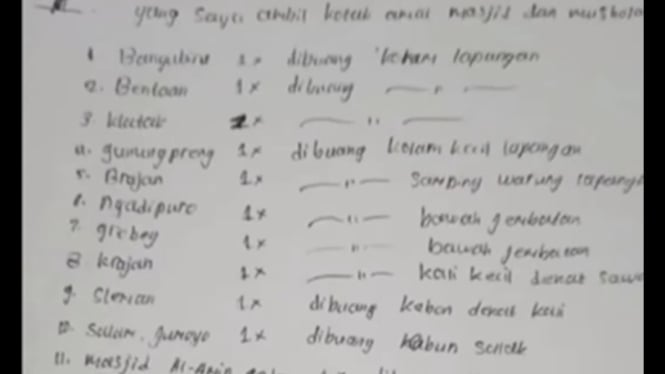 yang saya ambil kotak amal masjid dan mushola
1 Bangubiru 1x dibuang kolam lapangan
2. Bentaan 1x dibuang — " —
3. klatak 1x — " —
4. gunungpreng 1x dibuang kolam kecil lapangan
5. Brajan 1x — " — samping warung lapang
6. Ngadipuro 1x — " — bawah jembatan
7. grebeg 1x — " — bawah jembatan
8 krajan 1x — " — kali kecil dekat sawa
9. Sleman 1x dibuang kebon dekat kali
10. Salam, Jumoyo 1x dibuang kebun salak
11. masjid Al-Amin